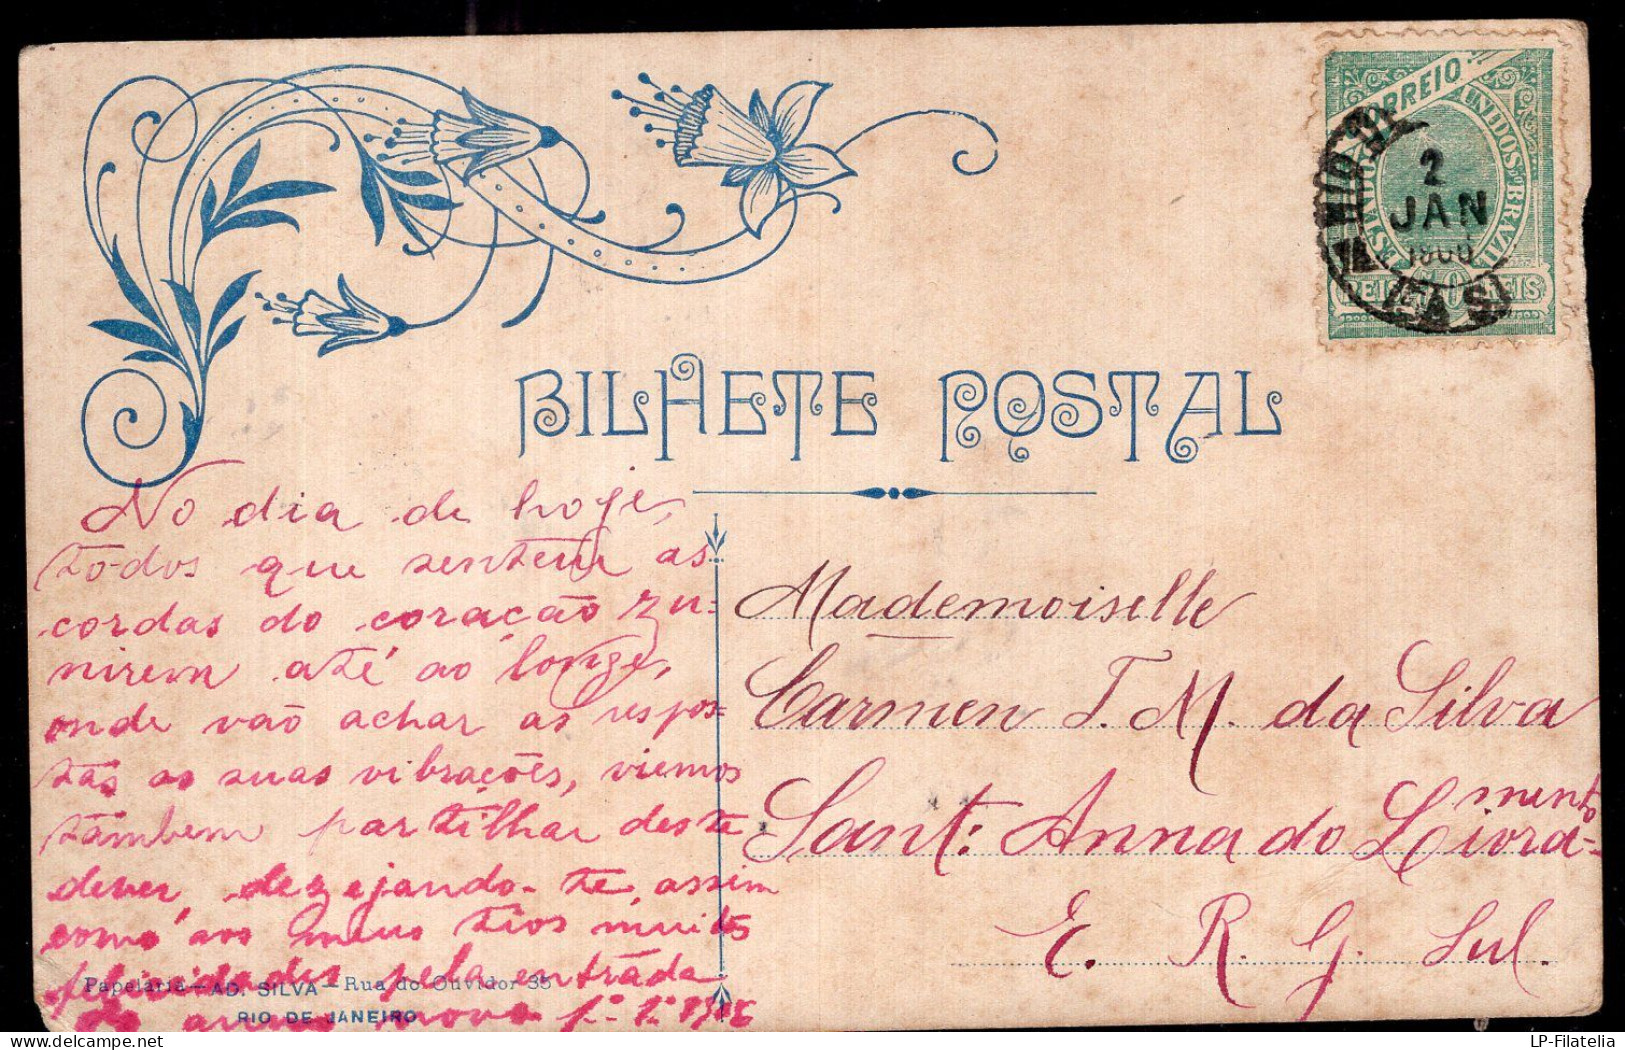 CORREIO
UNIDOS DO BRAZIL
2
JAN
REIS 50 REIS
BILHETE POSTAL
No dia de hoje,
todos que sentem as
cordas do coração zu-
nirem até ao longe,
onde vão achar as respos-
tas as suas vibrações, viemos
tambem partilhar deste
dever, dezejando-te, assim
como aos meus tios muitas
felicidades pela entrada
do anno novo 1º-1º-1906
Mademoiselle
Carmen T. M. da Silva
Sant'Anna do Livra-
mento
E. R. G. Sul.
Papelaria—AD. SILVA—Rua do Ouvidor 35
RIO DE JANEIRO
LP-Filatelia